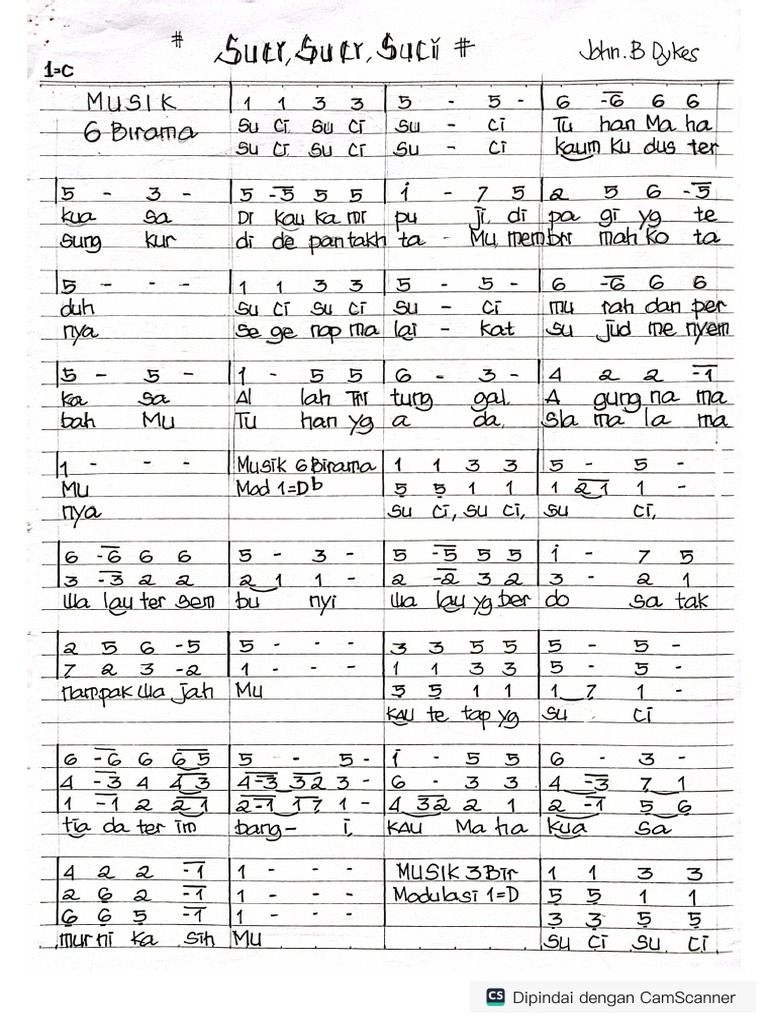 # Suci, Suci, Suci # John. B Dykes
1=C
MUSIK | 1 1 3 3 | 5 - 5 - | 6 -6 6 6
6 Birama | SU CI SU CI | SU - CI | TU han Ma ha
SU CI SU CI | SU - CI | kaum KU dus ter
5 - 3 - | 5 -5 5 5 | i - 7 5 | 2 5 6 -5
kua sa | DI kau ka mi | pu ji. di | pa gi yg te
sung kur | di de pan takh | ta - Mu, mem | bri mah ko ta
5 - - - | 1 1 3 3 | 5 - 5 - | 6 -6 6 6
duh | SU CI SU CI | SU - CI | mu rah dan per
nya | se ge nap ma | lai - kat | su jud me nyem
5 - 5 - | 1 - 5 5 | 6 - 3 - | 4 2 2 -1
ka sa | Al lah Tri | tung gal. | A gung na ma
bah MU | TU han yg | a da, | Sla ma la ma
1 - - - | Musik 6 Birama | 1 1 3 3 | 5 - 5 -
MU | Mod 1=Db | 5 5 1 1 | 1 21 1 -
nya | su ci, su ci, | su ci,
6 -6 6 6 | 5 - 3 - | 5 -5 5 5 | i - 7 5
3 -3 2 2 | 2 1 1 - | 2 -2 3 2 | 3 - 2 1
Wa lau ter sem | bu nyi | Wa lau yg ber | do sa tak
2 5 6 -5 | 5 - - - | 3 3 5 5 | 5 - 5 -
7 2 3 -2 | 1 - - - | 1 1 3 3 | 5 - 5 -
nampak wa jah | MU | 5 5 1 1 | 1 7 1 -
KAU te tap yg | su ci
6 -6 6 65 | 5 - 5 - | i - 5 5 | 6 - 3 -
4 -3 4 43 | 4-3 32 3 - | 6 - 3 3 | 4 -3 7 1
1 -1 2 21 | 2-1 17 1 - | 4 32 2 1 | 2 -1 5 6
tia da ter im | bang - i, | KAU Ma ha | kua sa
4 2 2 -1 | 1 - - - | MUSIK 3 Bir | 1 1 3 3
2 6 2 -1 | 1 - - - | Modulasi 1=D | 5 5 1 1
6 6 5 -1 | 1 - - - | 3 3 5 5
mur ni ka sih | MU | SU CI SU CI
CS Dipindai dengan CamScanner